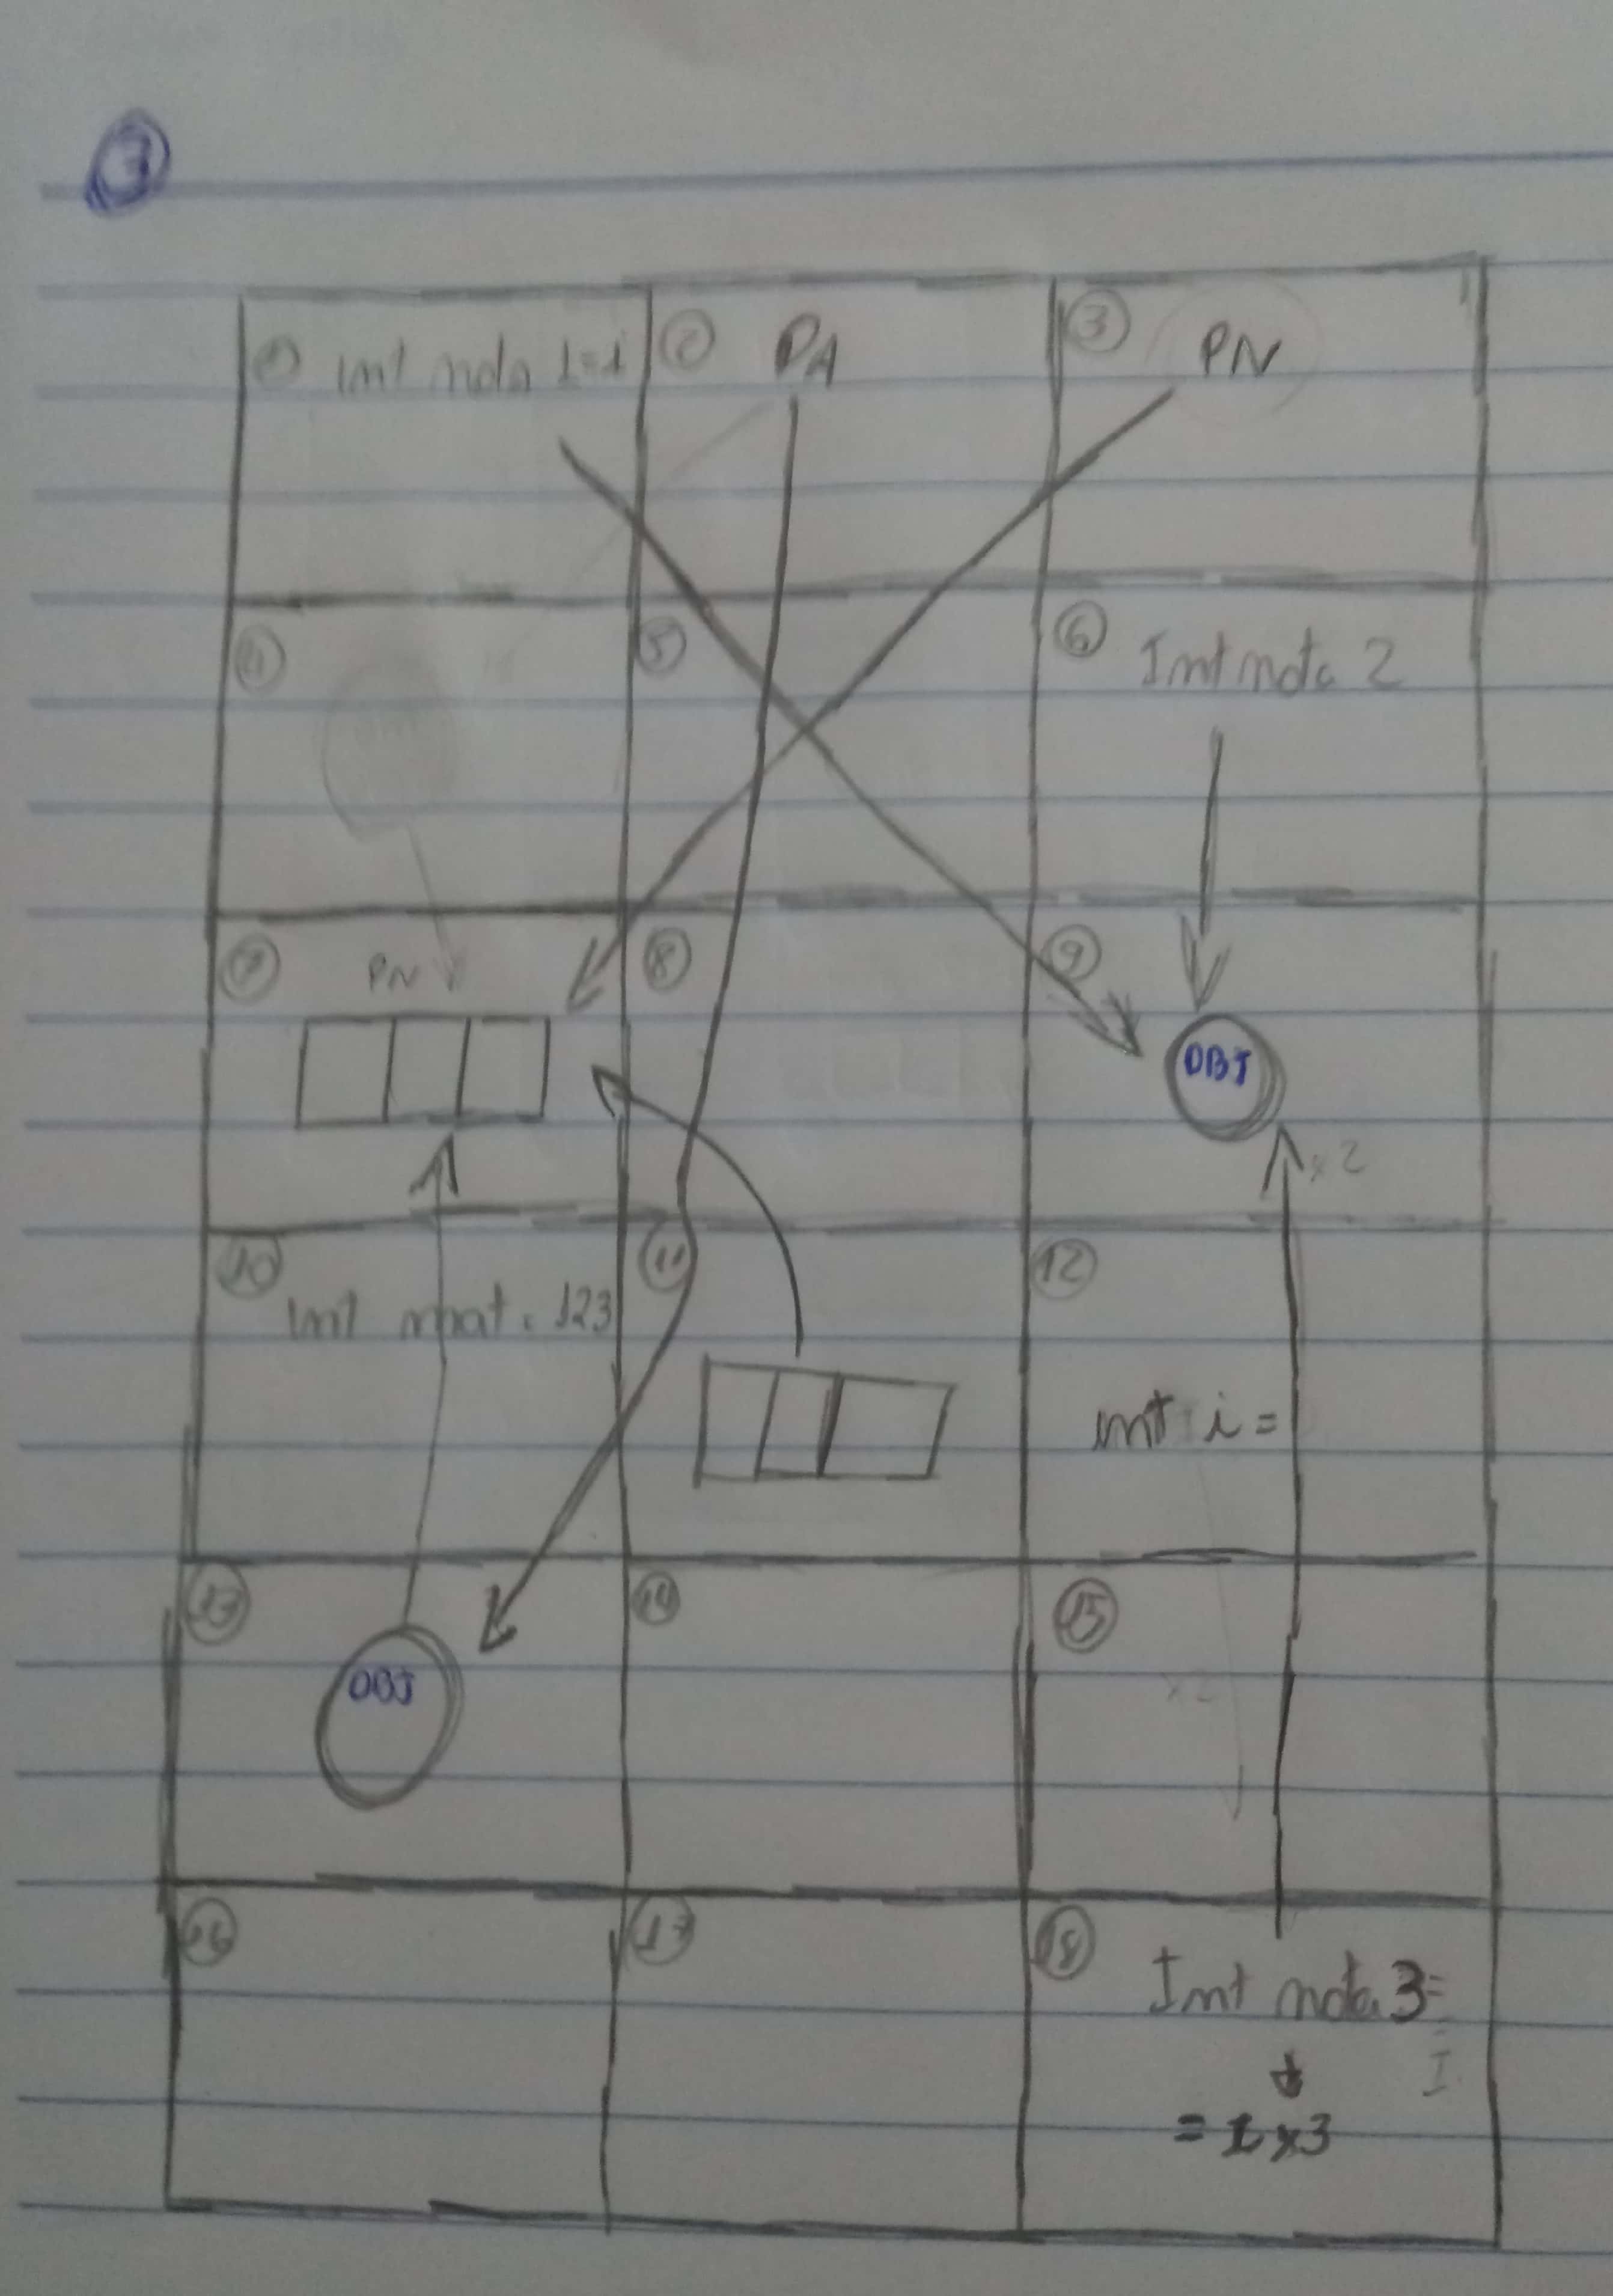 3
1 int nota 1=i
2 PA
3 PN
4
5
6 Int nota 2
7 PN
8
9 OBJ
x2
10 int mat = 123
11
12 int i =
13 OBJ
14
15
x2
16
17
18 Int nota 3=
I
= i x3